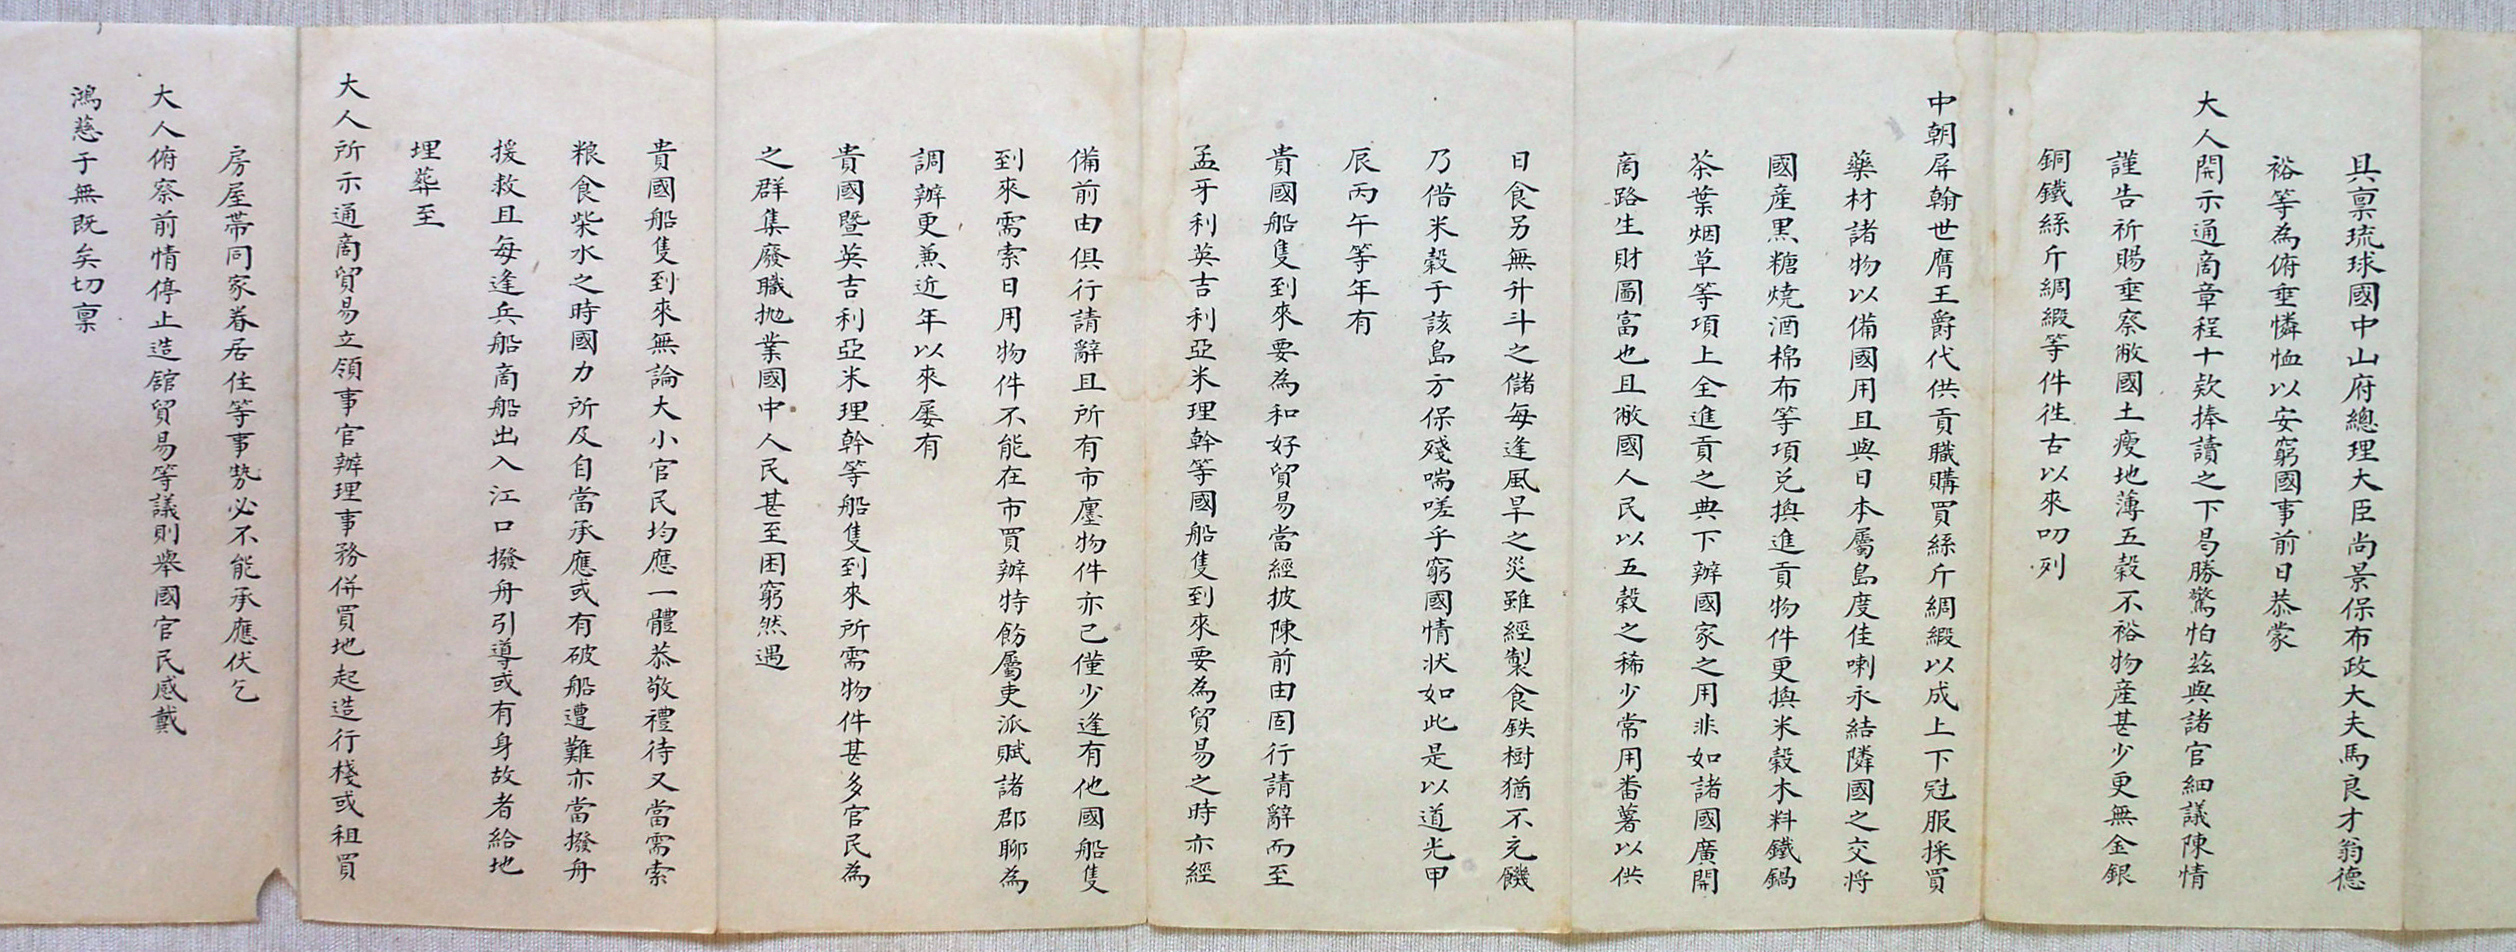 具稟琉球國中山府總理大臣尚景保布政大夫馬良才翁德
裕等為俯垂憐恤以安窮國事前日恭蒙
大人開示通商章程十款捧讀之下曷勝驚怕茲與諸官細議陳情
謹告祈賜垂察敝國土瘦地薄五穀不裕物產甚少更無金銀
銅鐵絲斤綢緞等件徃古以來叨列
中朝屏翰世膺王爵代供貢職購買絲斤綢緞以成上下冠服採買
藥材諸物以備國用且與日本屬島度佳喇永結隣國之交将
國産黒糖燒酒棉布等項兌換進貢物件更換米穀木料鐵鍋
茶葉烟草等項上全進貢之典下辦國家之用非如諸國廣開
商路生財圖富也且敝國人民以五穀之稀少常用番薯以供
日食另無升斗之儲每逢風旱之災雖經製食鉄樹猶不充饑
乃借米穀于該島方保殘喘嗟乎窮國情状如此是以道光甲
辰丙午等年有
貴國船隻到來要為和好貿易當經披陳前由固行請辭而至
孟牙利英吉利亞米理幹等國船隻到來要為貿易之時亦經
備前由俱行請辭且所有市廛物件亦已僅少逢有他國船隻
到來需索日用物件不能在市買辦特飭屬吏派賦諸郡聊為
調辦更兼近年以來屡有
貴國暨英吉利亞米理幹等船隻到來所需物件甚多官民為
之群集廢職抛業國中人民甚至困窮然遇
貴國船隻到來無論大小官民均應一體恭敬禮待又當需索
粮食柴水之時國力所及自當承應或有破船遭難亦當撥舟
援救且每逢兵船商船出入江口撥舟引導或有身故者給地
埋葬至
大人所示通商貿易立領事官辦理事務併買地起造行棧或租買
房屋帶同家眷居住等事勢必不能承應伏乞
大人俯察前情停止造舘貿易等議則舉國官民感戴
鴻慈于無既矣切稟